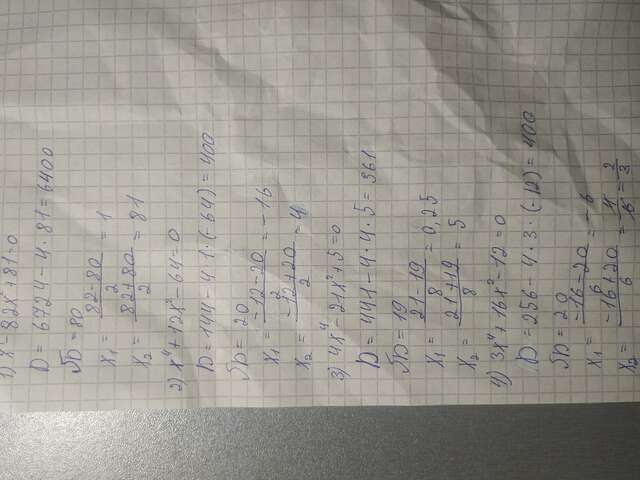 1) x⁴-82x²+81=0
D = 6724-4·81=6400
√D=80
x₁ = (82-80)/2 = 1
x₂ = (82+80)/2 = 81
2) x⁴+12x²-64=0
D = 144-4·1·(-64)=400
√D = 20
x₁ = (-12-20)/2 = -16
x₂ = (-12+20)/2 = 4
3) 4x⁴-21x²+5=0
D = 441-4·4·5=361
√D = 19
x₁ = (21-19)/8 = 0,25
x₂ = (21+19)/8 = 5
4) 3x⁴+16x²-12=0
D = 256-4·3·(-12)=400
√D = 20
x₁ = (-16-20)/6 = -6
x₂ = (-16+20)/6 = 4/6 = 2/3